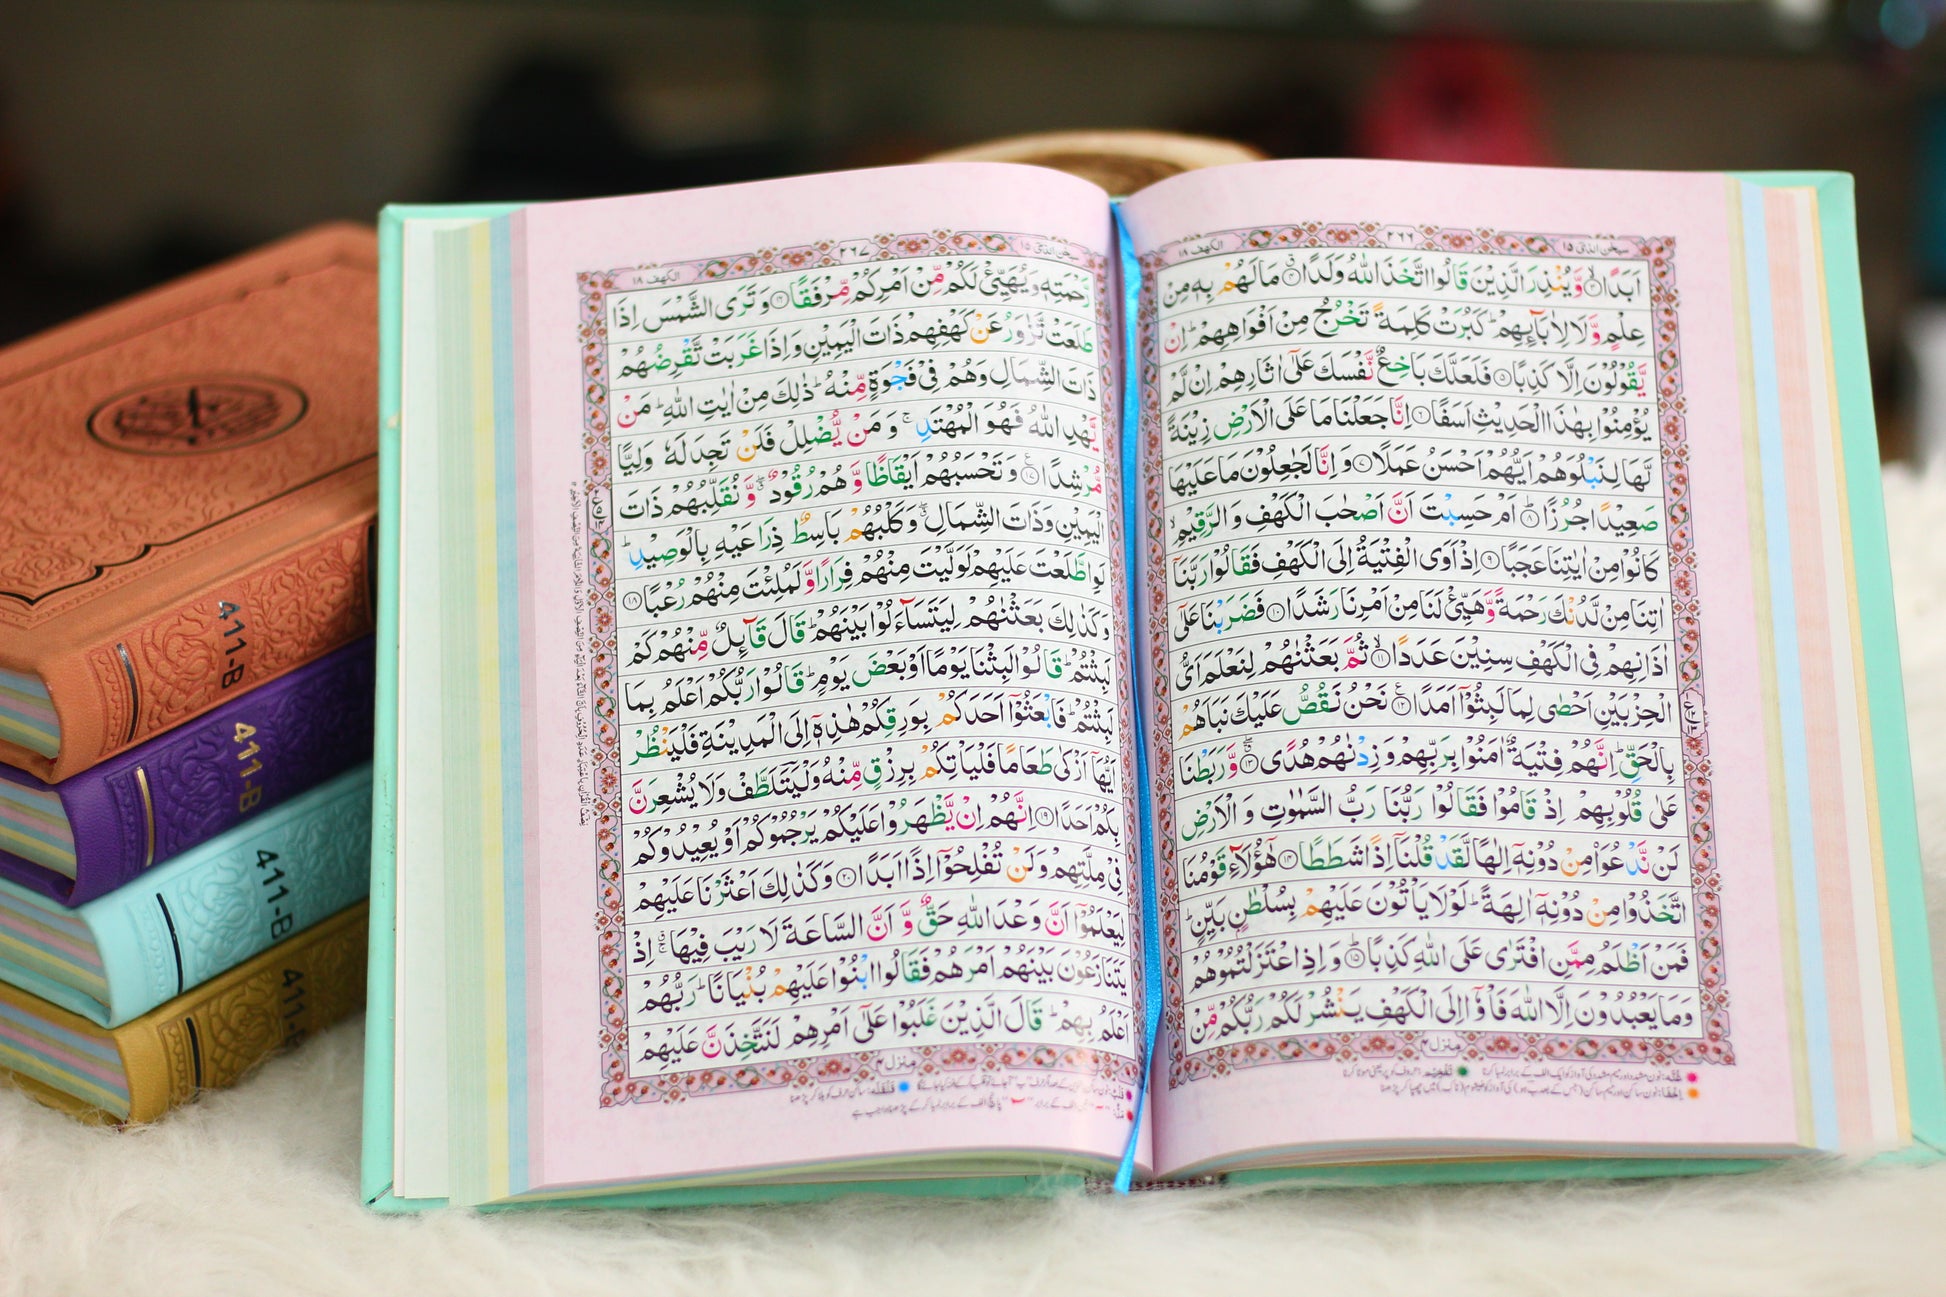 سبحن الذی ١٥ ٢٦٦ الکهف ١٨
اَبَدًا ۙ﴿۳﴾ وَّیُنْذِرَ الَّذِیْنَ قَالُوا اتَّخَذَ اللّٰهُ وَلَدًا ۗ﴿۴﴾ مَا لَهُمْ بِهٖ مِنْ
عِلْمٍ وَّلَا لِاٰبَآىِٕهِمْ ؕ كَبُرَتْ كَلِمَةً تَخْرُجُ مِنْ اَفْوَاهِهِمْ ؕ اِنْ
یَّقُوْلُوْنَ اِلَّا كَذِبًا ﴿۵﴾ فَلَعَلَّكَ بَاخِعٌ نَّفْسَكَ عَلٰۤی اٰثَارِهِمْ اِنْ لَّمْ
یُؤْمِنُوْا بِهٰذَا الْحَدِیْثِ اَسَفًا ﴿۶﴾ اِنَّا جَعَلْنَا مَا عَلَی الْاَرْضِ زِیْنَةً
لَّهَا لِنَبْلُوَهُمْ اَیُّهُمْ اَحْسَنُ عَمَلًا ﴿۷﴾ وَ اِنَّا لَجٰعِلُوْنَ مَا عَلَیْهَا
صَعِیْدًا جُرُزًا ؕ﴿۸﴾ اَمْ حَسِبْتَ اَنَّ اَصْحٰبَ الْكَهْفِ وَ الرَّقِیْمِ ۙ
كَانُوْا مِنْ اٰیٰتِنَا عَجَبًا ﴿۹﴾ اِذْ اَوَی الْفِتْیَةُ اِلَی الْكَهْفِ فَقَالُوْا رَبَّنَاۤ
اٰتِنَا مِنْ لَّدُنْكَ رَحْمَةً وَّهَیِّئْ لَنَا مِنْ اَمْرِنَا رَشَدًا ﴿۱۰﴾ فَضَرَبْنَا عَلٰۤی
اٰذَانِهِمْ فِی الْكَهْفِ سِنِیْنَ عَدَدًا ۙ﴿۱۱﴾ ثُمَّ بَعَثْنٰهُمْ لِنَعْلَمَ اَیُّ
الْحِزْبَیْنِ اَحْصٰی لِمَا لَبِثُوْۤا اَمَدًا ﴿۱۲﴾ نَحْنُ نَقُصُّ عَلَیْكَ نَبَاَهُمْ
بِالْحَقِّ ؕ اِنَّهُمْ فِتْیَةٌ اٰمَنُوْا بِرَبِّهِمْ وَ زِدْنٰهُمْ هُدًی ۖ﴿۱۳﴾ وَّ رَبَطْنَا
عَلٰی قُلُوْبِهِمْ اِذْ قَامُوْا فَقَالُوْا رَبُّنَا رَبُّ السَّمٰوٰتِ وَ الْاَرْضِ
لَنْ نَّدْعُوَا مِنْ دُوْنِهٖۤ اِلٰهًا لَّقَدْ قُلْنَاۤ اِذًا شَطَطًا ﴿۱۴﴾ هٰۤؤُلَآءِ قَوْمُنَا
اتَّخَذُوْا مِنْ دُوْنِهٖۤ اٰلِهَةً ؕ لَوْ لَا یَاْتُوْنَ عَلَیْهِمْ بِسُلْطٰنٍۭ بَیِّنٍ ؕ
فَمَنْ اَظْلَمُ مِمَّنِ افْتَرٰی عَلَی اللّٰهِ كَذِبًا ؕ﴿۱۵﴾ وَ اِذِ اعْتَزَلْتُمُوْهُمْ
وَ مَا یَعْبُدُوْنَ اِلَّا اللّٰهَ فَاْوٗۤا اِلَی الْكَهْفِ یَنْشُرْ لَكُمْ رَبُّكُمْ مِّنْ
منزل ٤
غُنّہ: نون مشدد اور میم مشدد کی آواز کو ایک الف کے برابر لمبا کرنا تفخیم: حروف کو پُر یعنی موٹا کرنا
اِخفا: نون ساکن اور میم ساکن (جس کے بعد ب ہو) کی آواز کو خیشوم (ناک) میں چھپا کر پڑھنا
سبحن الذی ١٥ ٢٦٧ الکهف ١٨
رَّحْمَتِهٖ وَیُهَیِّئْ لَكُمْ مِّنْ اَمْرِكُمْ مِّرْفَقًا ﴿۱۶﴾ وَ تَرَی الشَّمْسَ اِذَا
طَلَعَتْ تَّزٰوَرُ عَنْ كَهْفِهِمْ ذَاتَ الْیَمِیْنِ وَ اِذَا غَرَبَتْ تَّقْرِضُهُمْ
ذَاتَ الشِّمَالِ وَ هُمْ فِیْ فَجْوَةٍ مِّنْهُ ؕ ذٰلِكَ مِنْ اٰیٰتِ اللّٰهِ ؕ مَنْ
یَّهْدِ اللّٰهُ فَهُوَ الْمُهْتَدِ ۚ وَ مَنْ یُّضْلِلْ فَلَنْ تَجِدَ لَهٗ وَلِیًّا
مُّرْشِدًا ﴿۱۷﴾ وَ تَحْسَبُهُمْ اَیْقَاظًا وَّ هُمْ رُقُوْدٌ ۖ وَّ نُقَلِّبُهُمْ ذَاتَ
الْیَمِیْنِ وَ ذَاتَ الشِّمَالِ ۖ وَ كَلْبُهُمْ بَاسِطٌ ذِرَاعَیْهِ بِالْوَصِیْدِ ؕ
لَوِ اطَّلَعْتَ عَلَیْهِمْ لَوَلَّیْتَ مِنْهُمْ فِرَارًا وَّ لَمُلِئْتَ مِنْهُمْ رُعْبًا ﴿۱۸﴾
وَ كَذٰلِكَ بَعَثْنٰهُمْ لِیَتَسَآءَلُوْا بَیْنَهُمْ ؕ قَالَ قَآىِٕلٌ مِّنْهُمْ كَمْ
لَبِثْتُمْ ؕ قَالُوْا لَبِثْنَا یَوْمًا اَوْ بَعْضَ یَوْمٍ ؕ قَالُوْا رَبُّكُمْ اَعْلَمُ بِمَا
لَبِثْتُمْ ؕ فَابْعَثُوْۤا اَحَدَكُمْ بِوَرِقِكُمْ هٰذِهٖۤ اِلَی الْمَدِیْنَةِ فَلْیَنْظُرْ
اَیُّهَاۤ اَزْكٰی طَعَامًا فَلْیَاْتِكُمْ بِرِزْقٍ مِّنْهُ وَ لْیَتَلَطَّفْ وَ لَا یُشْعِرَنَّ
بِكُمْ اَحَدًا ﴿۱۹﴾ اِنَّهُمْ اِنْ یَّظْهَرُوْا عَلَیْكُمْ یَرْجُمُوْكُمْ اَوْ یُعِیْدُوْكُمْ
فِیْ مِلَّتِهِمْ وَ لَنْ تُفْلِحُوْۤا اِذًا اَبَدًا ﴿۲۰﴾ وَ كَذٰلِكَ اَعْثَرْنَا عَلَیْهِمْ
لِیَعْلَمُوْۤا اَنَّ وَعْدَ اللّٰهِ حَقٌّ وَّ اَنَّ السَّاعَةَ لَا رَیْبَ فِیْهَا ۚ اِذْ
یَتَنَازَعُوْنَ بَیْنَهُمْ اَمْرَهُمْ فَقَالُوا ابْنُوْا عَلَیْهِمْ بُنْیَانًا ؕ رَبُّهُمْ
اَعْلَمُ بِهِمْ ؕ قَالَ الَّذِیْنَ غَلَبُوْا عَلٰۤی اَمْرِهِمْ لَنَتَّخِذَنَّ عَلَیْهِمْ
منزل ٤
قلقلہ: ساکن حرف کو ہلا کر پڑھنا
411-B
411-B
411-B
411-